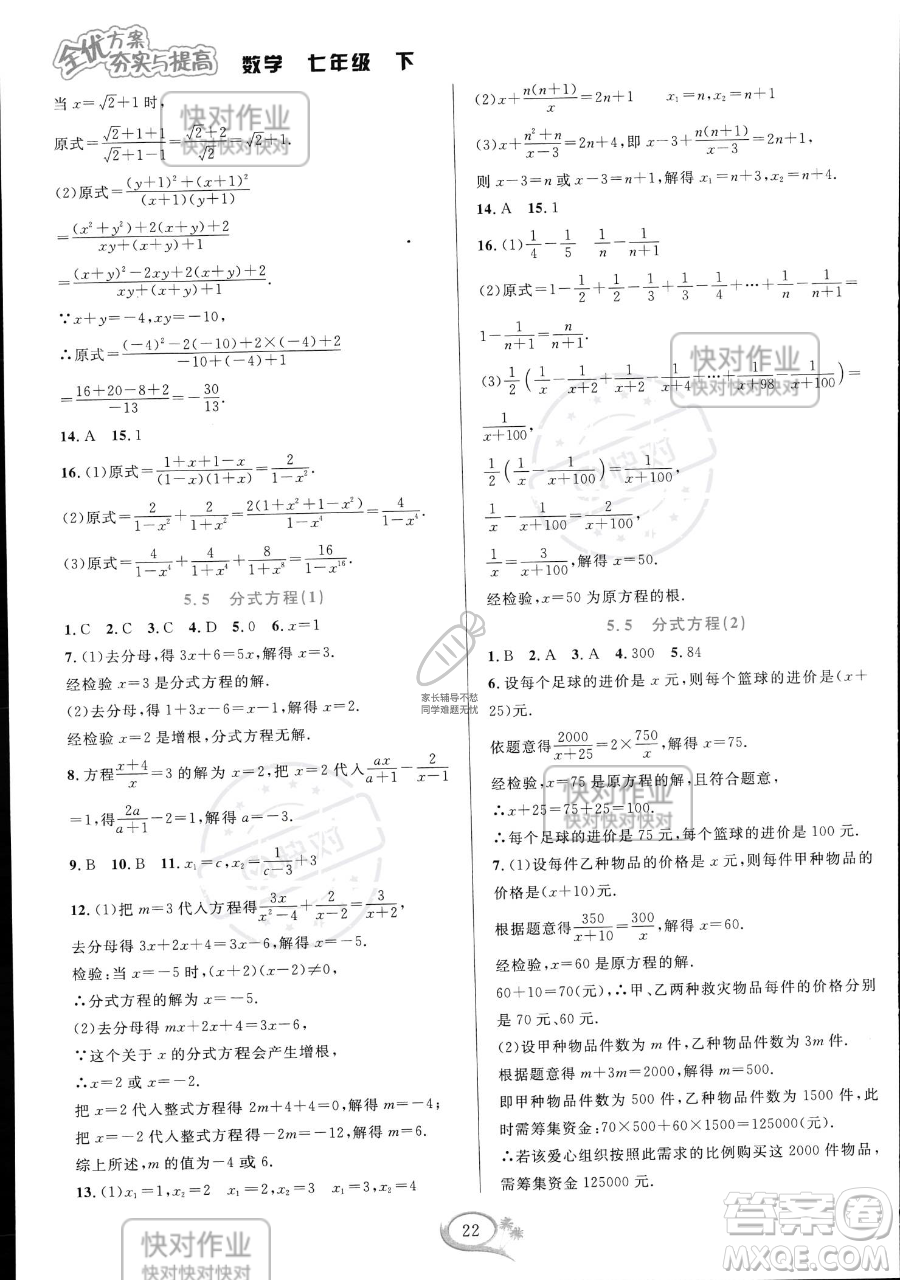 全优方案
夯实与提高
数学 七年级 下
当 x=√2+1 时,
原式=(√2+1+1)/(√2+1-1)=(√2+2)/√2=√2+1.
(2)原式=((y+1)²+(x+1)²)/((x+1)(y+1))
=((x²+y²)+2(x+y)+2)/(xy+(x+y)+1)
=((x+y)²-2xy+2(x+y)+2)/(xy+(x+y)+1).
∵x+y=-4,xy=-10,
∴原式=((-4)²-2(-10)+2×(-4)+2)/(-10+(-4)+1)
=(16+20-8+2)/(-13)=-30/13.
14.A 15.1
16.(1)原式=(1+x+1-x)/((1-x)(1+x))=2/(1-x²).
(2)原式=2/(1-x²)+2/(1+x²)=2(1+x²+1-x²)/(1-x⁴)=4/(1-x⁴).
(3)原式=4/(1-x⁴)+4/(1+x⁴)+8/(1+x⁸)=16/(1-x¹⁶).
5.5 分式方程(1)
1.C 2.C 3.C 4.D 5.0 6.x=1
7.(1)去分母,得 3x+6=5x,解得 x=3.
经检验 x=3 是分式方程的解.
(2)去分母,得 1+2x-4=x-1,解得 x=2.
经检验 x=2 是增根,分式方程无解.
8.方程(x+4)/x=3 的解为 x=2,把 x=2 代入 ax/(a+1)-2/(x-1)
=1,得 2a/(a+1)-2=1,解得 a=-3.
9.B 10.B 11.x₁=c,x₂=1/(c-3)+3
12.(1)把 m=3 代入方程得 3x/(x²-4)+2/(x-2)=3/(x+2),
去分母得 3x+2x+4=3x-6,解得 x=-5.
检验:当 x=-5 时,(x+2)(x-2)≠0,
∴分式方程的解为 x=-5.
(2)去分母得 mx+2x+4=3x-6,
∵这个关于 x 的分式方程会产生增根,
∴x=2 或 x=-2.
把 x=2 代入整式方程得 2m+4+4=0,解得 m=-4;
把 x=-2 代入整式方程得-2m=-12,解得 m=6.
综上所述,m 的值为-4或 6.
13.(1)x₁=1 x₂=2 x₁=2 x₂=3 x₁=3 x₂=4
(2)x+n(n+1)/x=2n+1 x₁=n x₂=n+1
(3)x+(n²+n)/(x-3)=2n+4,即 x-3+n(n+1)/(x-3)=2n+1,
则 x-3=n 或 x-3=n+1,解得 x₁=n+3,x₂=n+4.
14.A 15.1
16.(1)1/4-1/5 1/n-1/(n+1)
(2)原式=1-1/2+1/2-1/3+1/3-1/4+…+1/n-1/(n+1)=
1-1/(n+1)=n/(n+1).
(3)1/2(1/x-1/(x+2)+1/(x+2)-1/(x+4)+…+1/(x+98)-1/(x+100))=
1/(x+100),
1/2(1/x-1/(x+100))=1/(x+100),
1/x-1/(x+100)=2/(x+100),
1/x=3/(x+100),解得 x=50.
经检验,x=50 为原方程的根.
5.5 分式方程(2)
1.B 2.A 3.A 4.300 5.84
6.设每个足球的进价是 x 元,则每个篮球的进价是(x+
25)元.
依题意得 2000/(x+25)=2×750/x,解得 x=75.
经检验,x=75 是原方程的解,且符合题意,
∴x+25=75+25=100.
∴每个足球的进价是 75 元,每个篮球的进价是 100 元.
7.(1)设每件乙种物品的价格是 x 元,则每件甲种物品的
价格是(x+10)元.
根据题意得 350/(x+10)=300/x,解得 x=60.
经检验,x=60 是原方程的解.
60+10=70(元),∴甲、乙两种救灾物品每件的价格分别
是 70 元、60 元.
(2)设甲种物品件数为 m 件,乙种物品件数为 3m 件.
根据题意得 m+3m=2000,解得 m=500.
即甲种物品件数为 500 件,乙种物品件数为 1500 件,此
时需筹集资金:70×500+60×1500=125000(元).
∴若该爱心组织按照此需求的比例购买这 2000 件物品,
需筹集资金 125000 元.
22
快对作业
快对快对快对
快对作业
快对快对快对
快对
家长辅导不愁
同学难题无忧
快对作业
快对快对快对
快对
快对作业
快对快对快对
答案圈
MXQE.COM